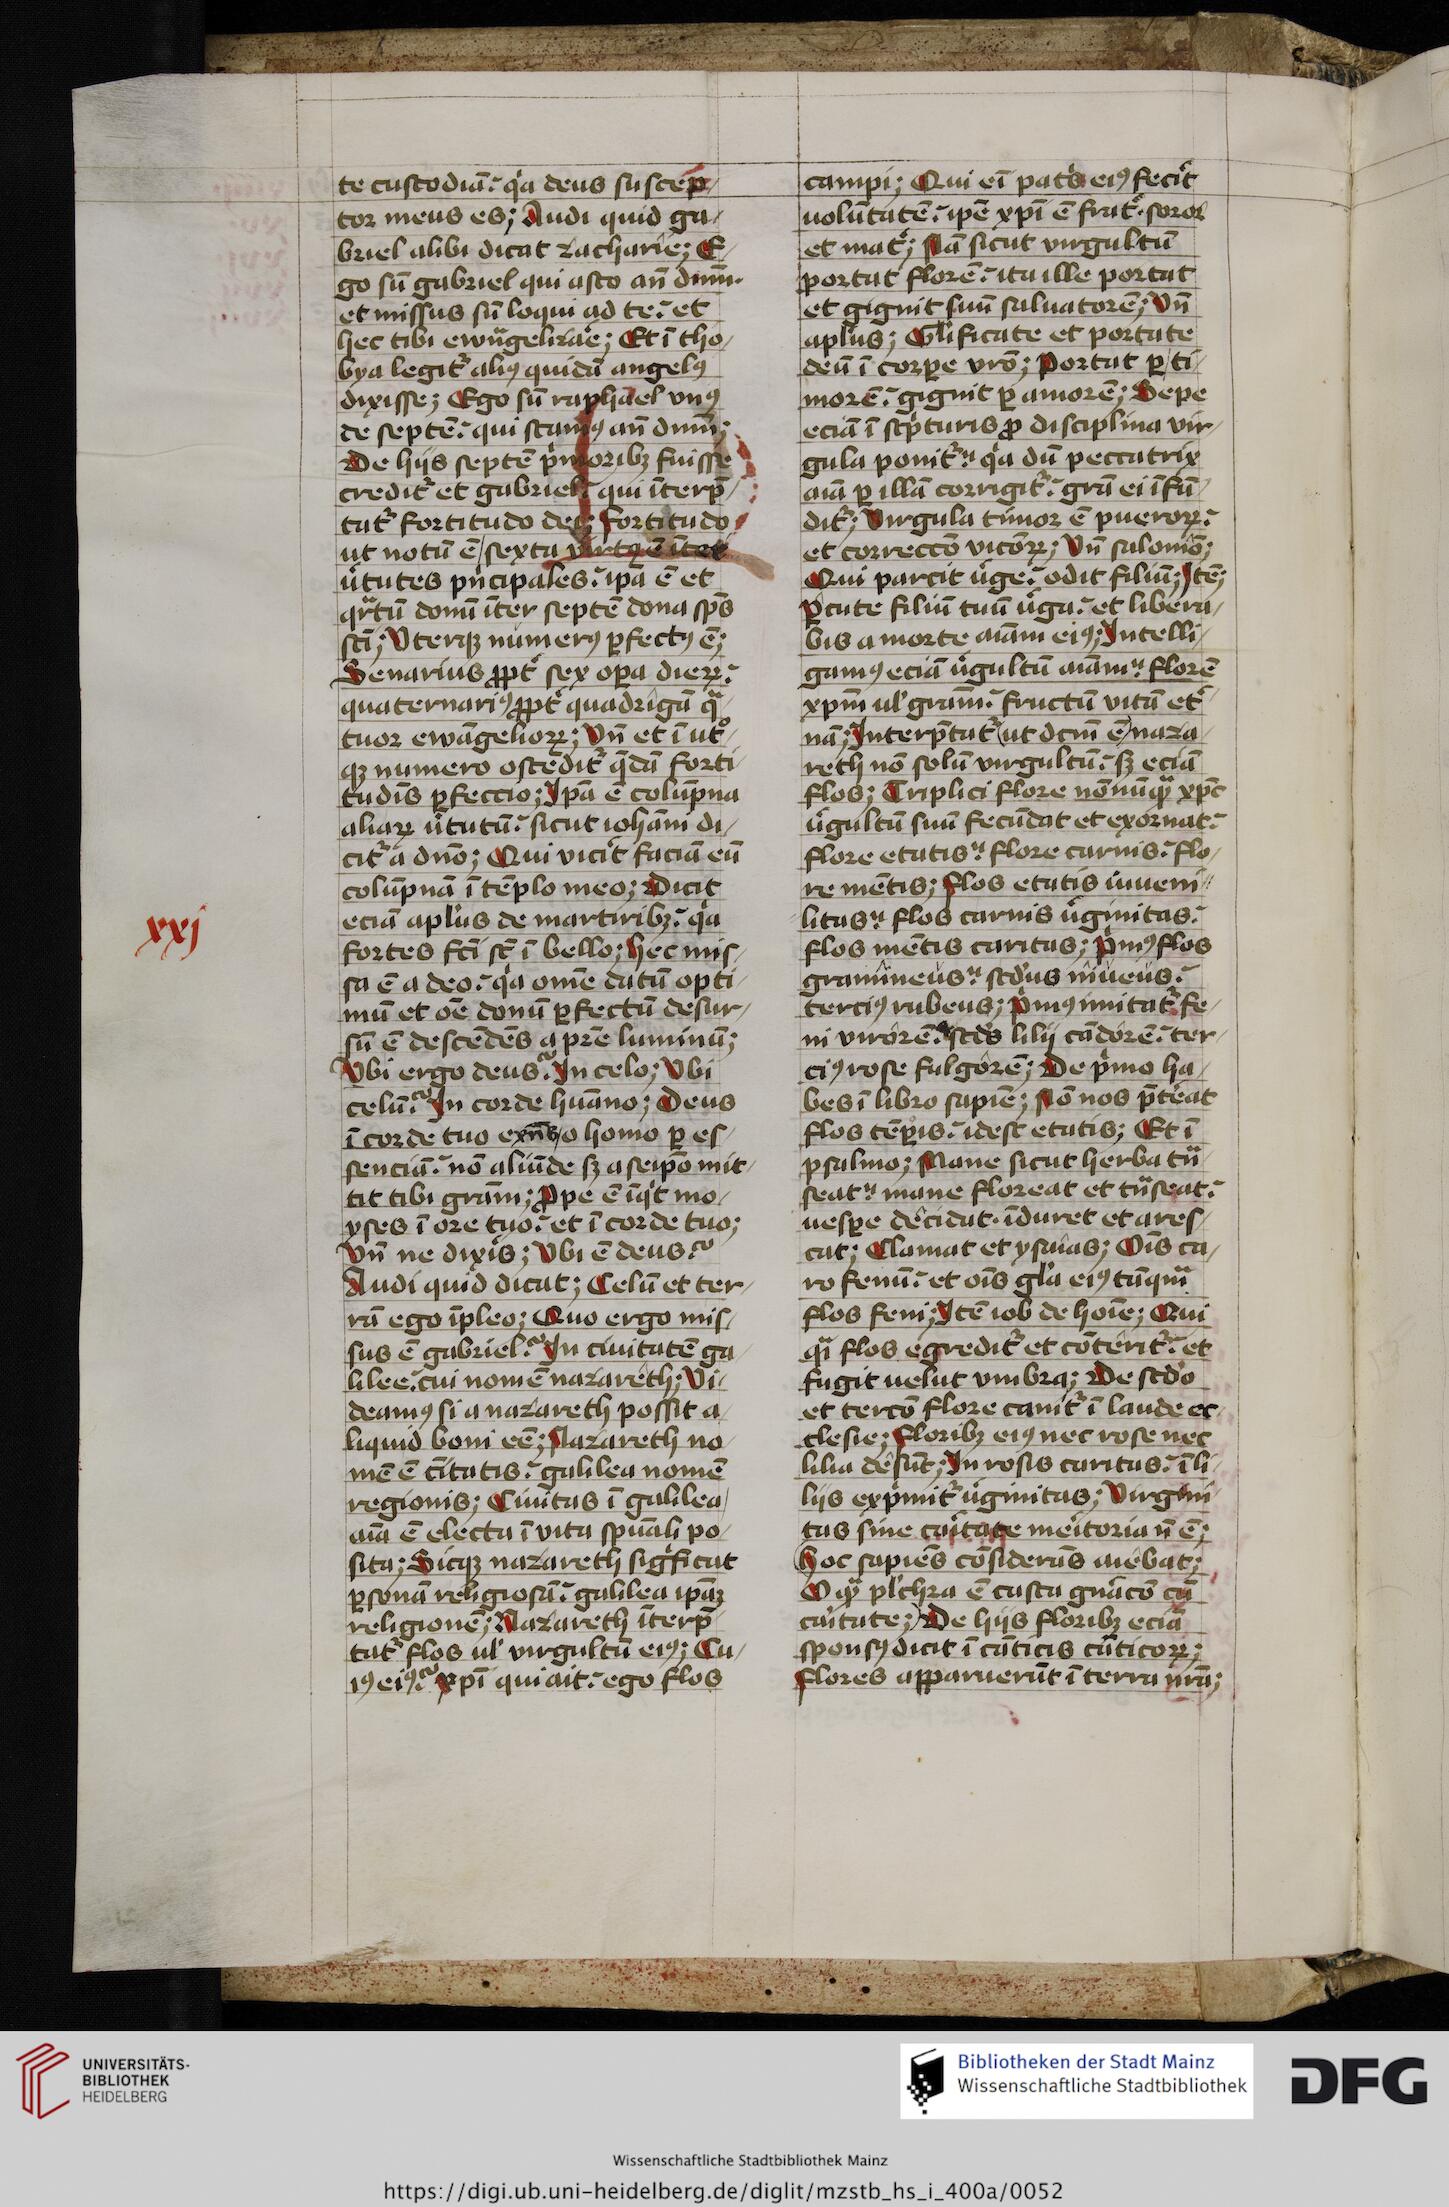 te custodiā. q̇a deus suscep
tor meus es; Audi quid ga
briel alibi dicat zacharie; E
go sū gabriel qui asto añ dnm̄.
et missus sū loqui ad te. et
hec tibi ewāgelizaē; Et ī tho
bya legit᷑ aliꝰ quidā angelꝰ
dixisse; Ego sū raphael vnꝰ
de septē. qui stamꝰ añ dnm̄;
De hijs septē ṗmoribꝫ fuisse
credit᷑ et gabriel. qui īterp̄
tat᷑ fortitudo dei; fortitudo
ut notū ē / sexta virtꝰ ē īter
v̇tutes pn̄cipales. ipā ē et
qr̄tū donū īter septē dona sp̄s
sc̄i; Vterqꝫ numerꝰ ꝑfectꝰ ē;
Senarius ꝓpt᷑ sex oꝑa dieꝝ.
quaternariꝰ ꝓpt᷑ quadrigā qᷓ
tuor ewāgelioꝝ; Vn̄ et ī ut͛
qꝫ numero ostēdit᷑ q̄dā forti
tudīs ꝑfeccio; Ipā ē colūpna
aliaꝝ v̇tutū. sicut iohāni di
cit᷑ a dn̄o; Qui vicīt faciā eū
colūpnā ī tēplo meo; Dicit
eciā apl̄us de martiribꝫ. q̇a
fortes fc̄i sc̄t ī bello; Hec mis
sa ē a deo. q̇a omē datū opti
mū et oē donū ꝑfectū desur
sū ē descēdēs a pr̄e luminū;
Vbi ergo deus? In celo; Vbi
celū? In corde huāno; Deus
ī corde tuo exn̄s / o homo ꝑ es
senciā. nō aliūde sꝫ a seipō mit
tit tibi grām; Ꝓpe ē īq̇t mo
yses ī ore tuo. et ī corde tuo;
Vn̄ ne dixīs; Vbi ē deus?
Audi quid dicat; Celū et ter
rā ego īpleo; Quo ergo mis
sus ē gabriel? In ciuitatē ga
lilee. cui nomē nazareth; Vi
deamꝰ si a nazareth possit a
liquid boni eē; Nazareth no
mē ē c̄itatis. galilea nomē
regionis; Ciuitas ī galilea
aīa ē electa ī vita spūali po
sita; Sicqꝫ nazareth sig̊ficat
ꝑsonā religiosā. galilea ipāꝫ
religionē; Nazareth īterp̄
tat᷑ flos ul̄ virgultū eiꝰ; Cu
iꝰ eiꝰ? xp̄i qui ait. ego flos
xxj
campi; Qui eī pat᷑s eiꝰ fec̄it
uolūtatē. ipē xp̄i ē frat᷑. soror
et mat᷑; Nā sicut virgultū
portat florē. ita ille portat
et gignit suū saluatorē; Vn̄
apl̄us; Gl̄ificate et portate
deū ī corꝑe vrō; Portat ꝑ ti
morē. gignit ꝑ amorē; Sepe
eciā ī sc̄pturis ꝓ disciplina vir
gula ponit᷑. q̇a dū peccatrix
aīā ꝑ illā corrigit᷑. grā ei īfū
dit᷑; Virgula timor ē pueroꝝ.
et correccō vicōꝝ; Vn̄ salomō;
Qui parcit v̇ge. odit filiū; Itē;
ꝑcute filiū tuū v̇ga. et libera
bis a morte aīam eiꝰ; Intelli
gamꝰ eciā v̇gultū aīam. florē
xpm̄ ul̄ grām. fructū vitā et᷑
nā; Interp̄tat᷑ (ut dcm̄ ē) naza
reth nō solū virgultū. sꝫ eciā
flos; Triplici flore nōnūqᷓ xp̄c
v̇gultū suū fecūdat et exornat.
flore etatis. flore carnis. flo
re mētis; flos etatis iuueni
litas. flos carnis v̇ginitas.
flos mētis caritas; ṗmꝰ flos
gramineus. scd̄us niueus.
terciꝰ rubeus; ṗmꝰ imitat᷑ fe
ni virorē. scd̄s lilij cādorē. ter
ciꝰ rose fulgorē; De ṗmo ha
bes ī libro sapiē; Nō nos p̄tēat
flos tēꝑis. idest etatis; Et ī
psalmo; Mane sicut herba trā
seat. mane floreat et trāseat.
uesꝑe decidat. īduret et ares
cat; Clamat et ysaias; Oīs ca
ro fenū. et oīs gl̄a eiꝰ tāqᷓ
flos feni; Itē iob de hoīe; Qui
qᷓi flos egredit᷑ et cōterit᷑. et
fugit uelut vmbra; De scd̄o
et tercō flore canit᷑ ī laude ec
clesie; floribꝫ eiꝰ nec rose nec
lilia desūt; In rosis caritas. ī li
lijs exp̄mit᷑ v̇ginitas; Virgini
tas sine caītate meītoria n̄ ē;
Hoc sapiēs cōsiderās aiebat;
O qᷓ pl̄chra ē casta gnācō cū
caītate; De hijs floribꝫ eciā
sponsꝰ dicit ī cāticis cāticoꝝ;
flores apparuerūt ī terra nrā;
UNIVERSITÄTS-
BIBLIOTHEK
HEIDELBERG
Bibliotheken der Stadt Mainz
Wissenschaftliche Stadtbibliothek
DFG
Wissenschaftliche Stadtbibliothek Mainz
https://digi.ub.uni-heidelberg.de/diglit/mzstb_hs_i_400a/0052